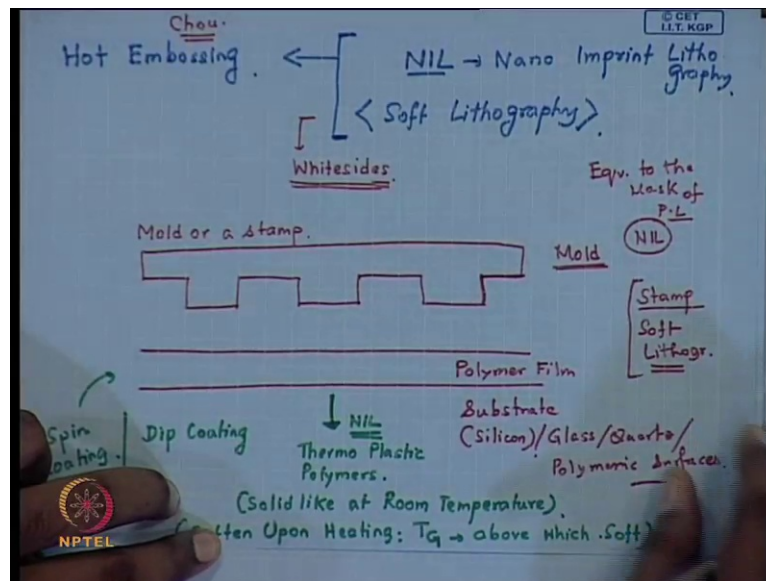 Chou.
© CET
I.I.T. KGP
Hot Embossing. ← NIL → Nano Imprint Litho
graphy.
< Soft Lithography >.
Whitesides.
Equ. to the
Mask of
P.L
NIL
Mold or a stamp.
Mold
Stamp
Soft
Lithogr.
Polymer Film
Spin
Coating. | Dip Coating
NIL
Thermo Plastic
Polymers.
Substrate
(Silicon)/Glass/Quartz/
Polymeric Surfaces.
(Solid like at Room Temperature).
Upon Heating: TG → above which Soft)
NPTEL